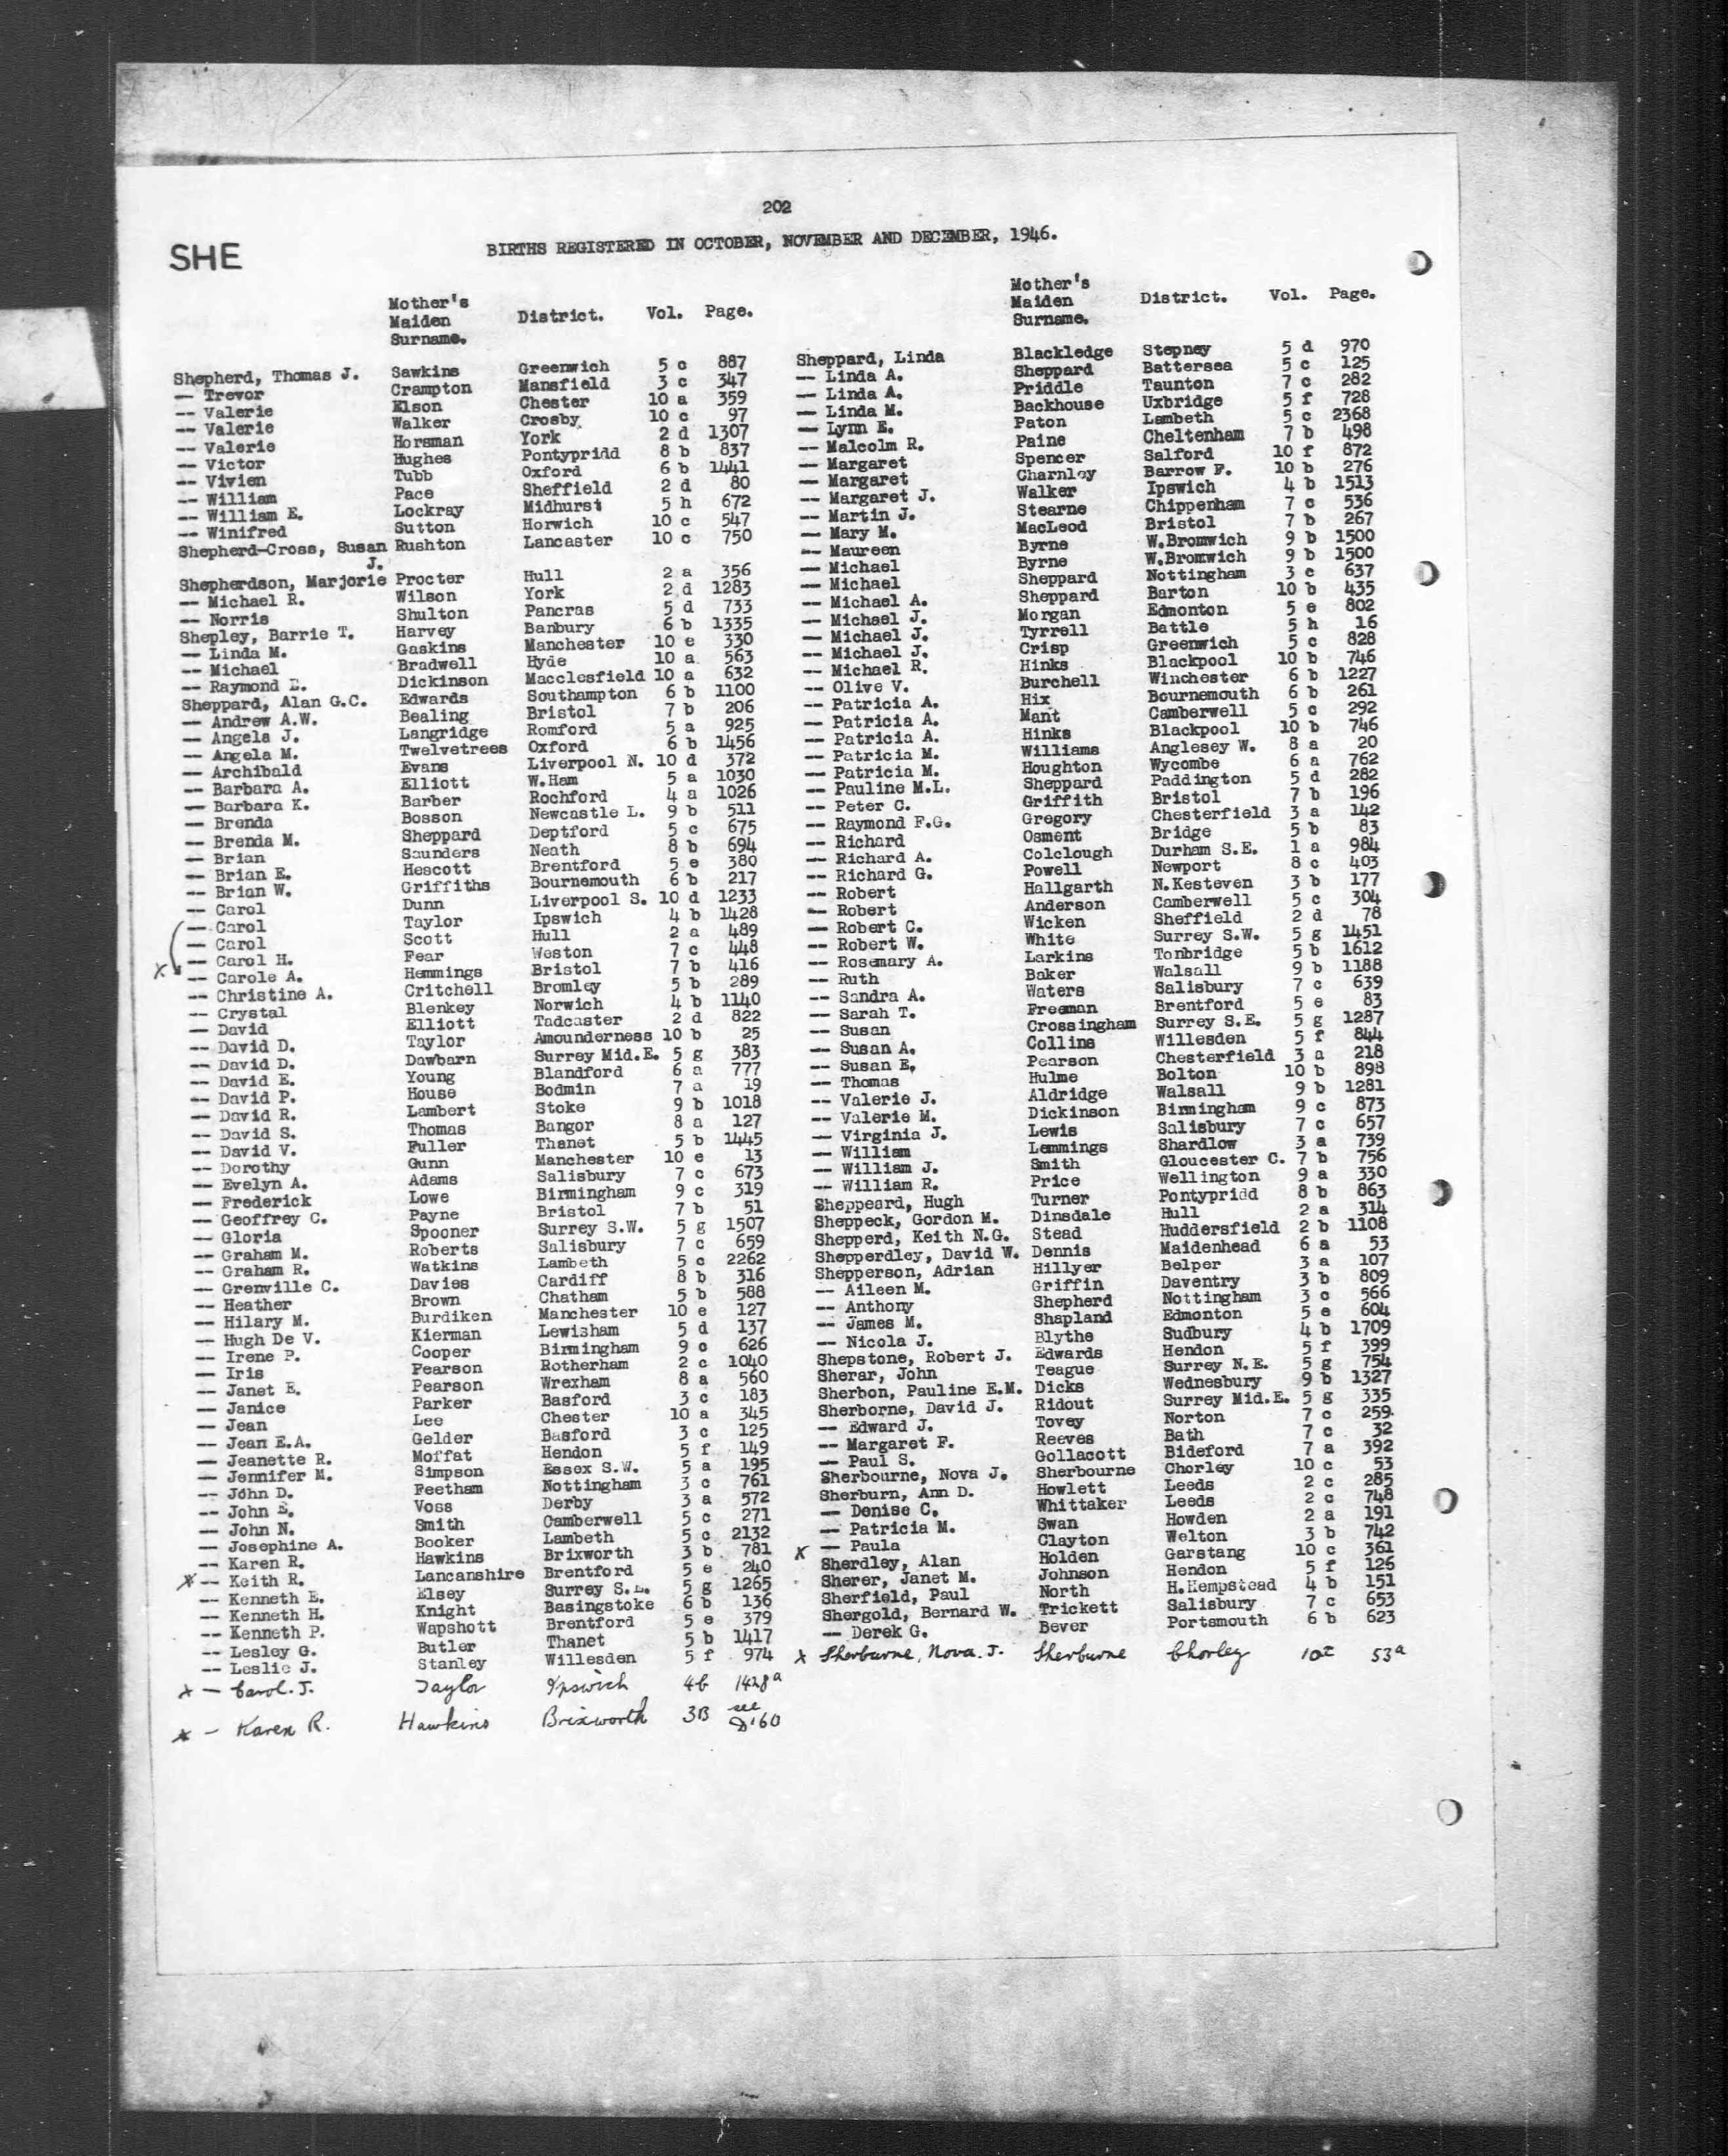 202
SHE
BIRTHS REGISTERED IN OCTOBER, NOVEMBER AND DECEMBER, 1946.
Mother's
Maiden District. Vol. Page.
Surname.
Shepherd, Thomas J. Sawkins Greenwich 5 c 887
-- Trevor Crampton Mansfield 3 c 347
-- Valerie Elson Chester 10 a 359
-- Valerie Walker Crosby 10 c 97
-- Valerie Horsman York 2 d 1307
-- Victor Hughes Pontypridd 8 b 837
-- Vivien Tubb Oxford 6 b 1441
-- William Pace Sheffield 2 d 80
-- William E. Lockray Midhurst 5 h 672
-- Winifred Sutton Horwich 10 c 547
Shepherd-Cross, Susan Rushton Lancaster 10 c 750
J.
Shepherdson, Marjorie Procter Hull 2 a 356
-- Michael R. Wilson York 2 d 1283
-- Norris Shulton Pancras 5 d 733
Shepley, Barrie T. Harvey Banbury 6 b 1335
-- Linda M. Gaskins Manchester 10 e 330
-- Michael Bradwell Hyde 10 a 563
-- Raymond E. Dickinson Macclesfield 10 a 632
Sheppard, Alan G.C. Edwards Southampton 6 b 1100
-- Andrew A.W. Bealing Bristol 7 b 206
-- Angela J. Langridge Romford 5 a 925
-- Angela M. Twelvetrees Oxford 6 b 1456
-- Archibald Evans Liverpool N. 10 d 372
-- Barbara A. Elliott W.Ham 5 a 1030
-- Barbara K. Barber Rochford 4 a 1026
-- Brenda Bosson Newcastle L. 9 b 511
-- Brenda M. Sheppard Deptford 5 c 675
-- Brian Saunders Neath 8 b 694
-- Brian E. Hescott Brentford 5 e 380
-- Brian W. Griffiths Bournemouth 6 b 217
-- Carol Dunn Liverpool S. 10 d 1233
-- Carol Taylor Ipswich 4 b 1428
-- Carol Scott Hull 2 a 489
-- Carol H. Fear Weston 7 c 448
x -- Carole A. Hemmings Bristol 7 b 416
-- Christine A. Critchell Bromley 5 b 289
-- Crystal Blenkey Norwich 4 b 1140
-- David Elliott Tadcaster 2 d 822
-- David D. Taylor Amounderness 10 b 25
-- David D. Dawbarn Surrey Mid.E. 5 g 383
-- David E. Young Blandford 6 a 777
-- David P. House Bodmin 7 a 19
-- David R. Lambert Stoke 9 b 1018
-- David S. Thomas Bangor 8 a 127
-- David V. Fuller Thanet 5 b 1445
-- Dorothy Gunn Manchester 10 e 13
-- Evelyn A. Adams Salisbury 7 c 673
-- Frederick Lowe Birmingham 9 c 319
-- Geoffrey C. Payne Bristol 7 b 51
-- Gloria Spooner Surrey S.W. 5 g 1507
-- Graham M. Roberts Salisbury 7 c 659
-- Graham R. Watkins Lambeth 5 c 2262
-- Grenville C. Davies Cardiff 8 b 316
-- Heather Brown Chatham 5 b 588
-- Hilary M. Burdiken Manchester 10 e 127
-- Hugh De V. Kierman Lewisham 5 d 137
-- Irene P. Cooper Birmingham 9 c 626
-- Iris Pearson Rotherham 2 c 1040
-- Janet E. Pearson Wrexham 8 a 560
-- Janice Parker Basford 3 c 183
-- Jean Lee Chester 10 a 345
-- Jean E.A. Gelder Basford 3 c 125
-- Jeanette R. Moffat Hendon 5 f 149
-- Jennifer M. Simpson Essex S.W. 5 a 195
-- John D. Feetham Nottingham 3 c 761
-- John E. Voss Derby 3 a 572
-- John N. Smith Camberwell 5 c 271
-- Josephine A. Booker Lambeth 5 c 2132
-- Karen R. Hawkins Brixworth 3 b 781
x -- Keith R. Lancanshire Brentford 5 e 240
-- Kenneth E. Elsey Surrey S.E. 5 g 1265
-- Kenneth H. Knight Basingstoke 6 b 136
-- Kenneth P. Wapshott Brentford 5 e 379
-- Lesley G. Butler Thanet 5 b 1417
-- Leslie J. Stanley Willesden 5 f 974
x - Carol. J. Taylor Ipswich 4b 1428a
x - Karen R. Hawkins Brixworth 3B see D'60
Mother's
Maiden District. Vol. Page.
Surname.
Sheppard, Linda Blackledge Stepney 5 d 970
-- Linda A. Sheppard Battersea 5 c 125
-- Linda A. Priddle Taunton 7 c 282
-- Linda M. Backhouse Uxbridge 5 f 728
-- Lynn E. Paton Lambeth 5 c 2368
-- Malcolm R. Paine Cheltenham 7 b 498
-- Margaret Spencer Salford 10 f 872
-- Margaret Charnley Barrow F. 10 b 276
-- Margaret J. Walker Ipswich 4 b 1513
-- Martin J. Stearne Chippenham 7 c 536
-- Mary M. MacLeod Bristol 7 b 267
-- Maureen Byrne W.Bromwich 9 b 1500
-- Michael Byrne W.Bromwich 9 b 1500
-- Michael Sheppard Nottingham 3 c 637
-- Michael A. Sheppard Barton 10 b 435
-- Michael J. Morgan Edmonton 5 e 802
-- Michael J. Tyrrell Battle 5 h 16
-- Michael J. Crisp Greenwich 5 c 828
-- Michael R. Hinks Blackpool 10 b 746
-- Olive V. Burchell Winchester 6 b 1227
-- Patricia A. Hix Bournemouth 6 b 261
-- Patricia A. Mant Camberwell 5 c 292
-- Patricia A. Hinks Blackpool 10 b 746
-- Patricia M. Williams Anglesey W. 8 a 20
-- Patricia M. Houghton Wycombe 6 a 762
-- Pauline M.L. Sheppard Paddington 5 d 282
-- Peter C. Griffith Bristol 7 b 196
-- Raymond F.G. Gregory Chesterfield 3 a 142
-- Richard Osment Bridge 5 b 83
-- Richard A. Colclough Durham S.E. 1 a 984
-- Richard G. Powell Newport 8 c 403
-- Robert Hallgarth N.Kesteven 3 b 177
-- Robert Anderson Camberwell 5 c 304
-- Robert C. Wicken Sheffield 2 d 78
-- Robert W. White Surrey S.W. 5 g 1451
-- Rosemary A. Larkins Tonbridge 5 b 1612
-- Ruth Baker Walsall 9 b 1188
-- Sandra A. Waters Salisbury 7 c 639
-- Sarah T. Freeman Brentford 5 e 83
-- Susan Crossingham Surrey S.E. 5 g 1287
-- Susan A. Collins Willesden 5 f 844
-- Susan E. Pearson Chesterfield 3 a 218
-- Thomas Hulme Bolton 10 b 898
-- Valerie J. Aldridge Walsall 9 b 1281
-- Valerie M. Dickinson Birmingham 9 c 873
-- Virginia J. Lewis Salisbury 7 c 657
-- William Lemmings Shardlow 3 a 739
-- William J. Smith Gloucester C. 7 b 756
-- William R. Price Wellington 9 a 330
Sheppeard, Hugh Turner Pontypridd 8 b 863
Sheppeck, Gordon M. Dinsdale Hull 2 a 314
Shepperd, Keith N.G. Stead Huddersfield 2 b 1108
Shepperdley, David W. Dennis Maidenhead 6 a 53
Shepperson, Adrian Hillyer Belper 3 a 107
-- Aileen M. Griffin Daventry 3 b 809
-- Anthony Shepherd Nottingham 3 c 566
-- James M. Shapland Edmonton 5 e 604
-- Nicola J. Blythe Sudbury 4 b 1709
Shepstone, Robert J. Edwards Hendon 5 f 399
Sherar, John Teague Surrey N.E. 5 g 754
Sherbon, Pauline E.M. Dicks Wednesbury 9 b 1327
Sherborne, David J. Ridout Surrey Mid.E. 5 g 335
-- Edward J. Tovey Norton 7 c 259
-- Margaret F. Reeves Bath 7 c 32
-- Paul S. Gollacott Bideford 7 a 392
Sherbourne, Nova J. Sherbourne Chorley 10 c 53
Sherburn, Ann D. Howlett Leeds 2 c 285
-- Denise C. Whittaker Leeds 2 c 748
-- Patricia M. Swan Howden 2 a 191
-- Paula Clayton Welton 3 b 742
x Sherdley, Alan Holden Garstang 10 c 361
Sherer, Janet M. Johnson Hendon 5 f 126
Sherfield, Paul North H.Hempstead 4 b 151
Shergold, Bernard W. Trickett Salisbury 7 c 653
-- Derek G. Bever Portsmouth 6 b 623
x Sherburne, Nova. J. Sherburne Chorley 10c 53a